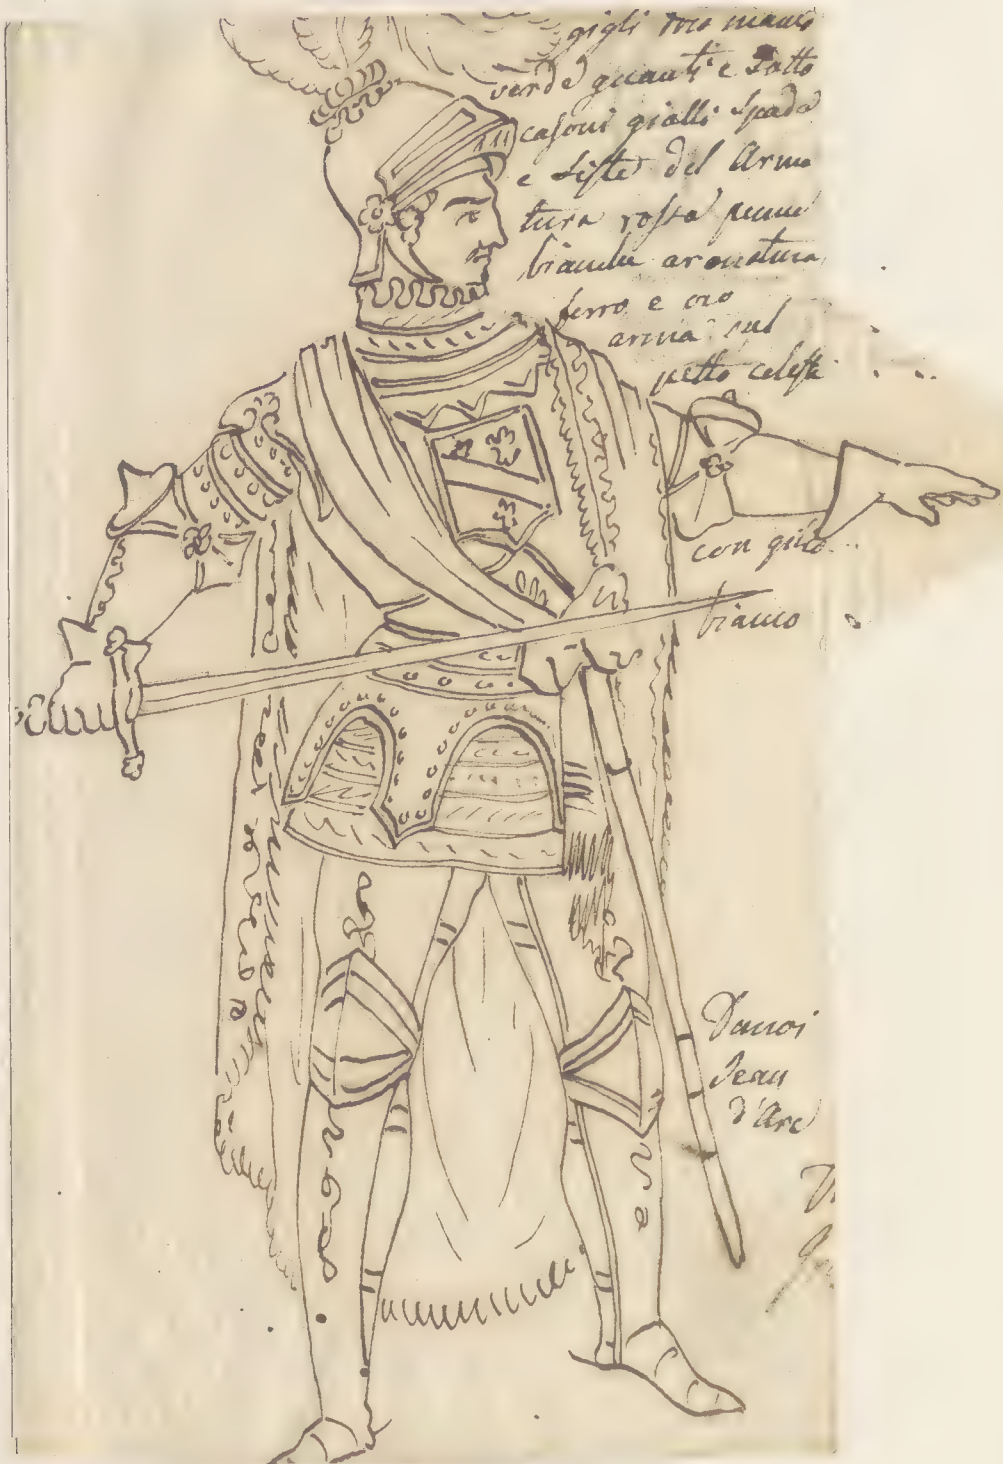 gigli d'oro manto
verde guanti e sotto
casoni gialli spada
e liste del Arma
tura rossa piume
bianche armatura
ferro e oro
arma sul
petto celeste
con giglio
bianco
Dunoi
Jean
d'Arc